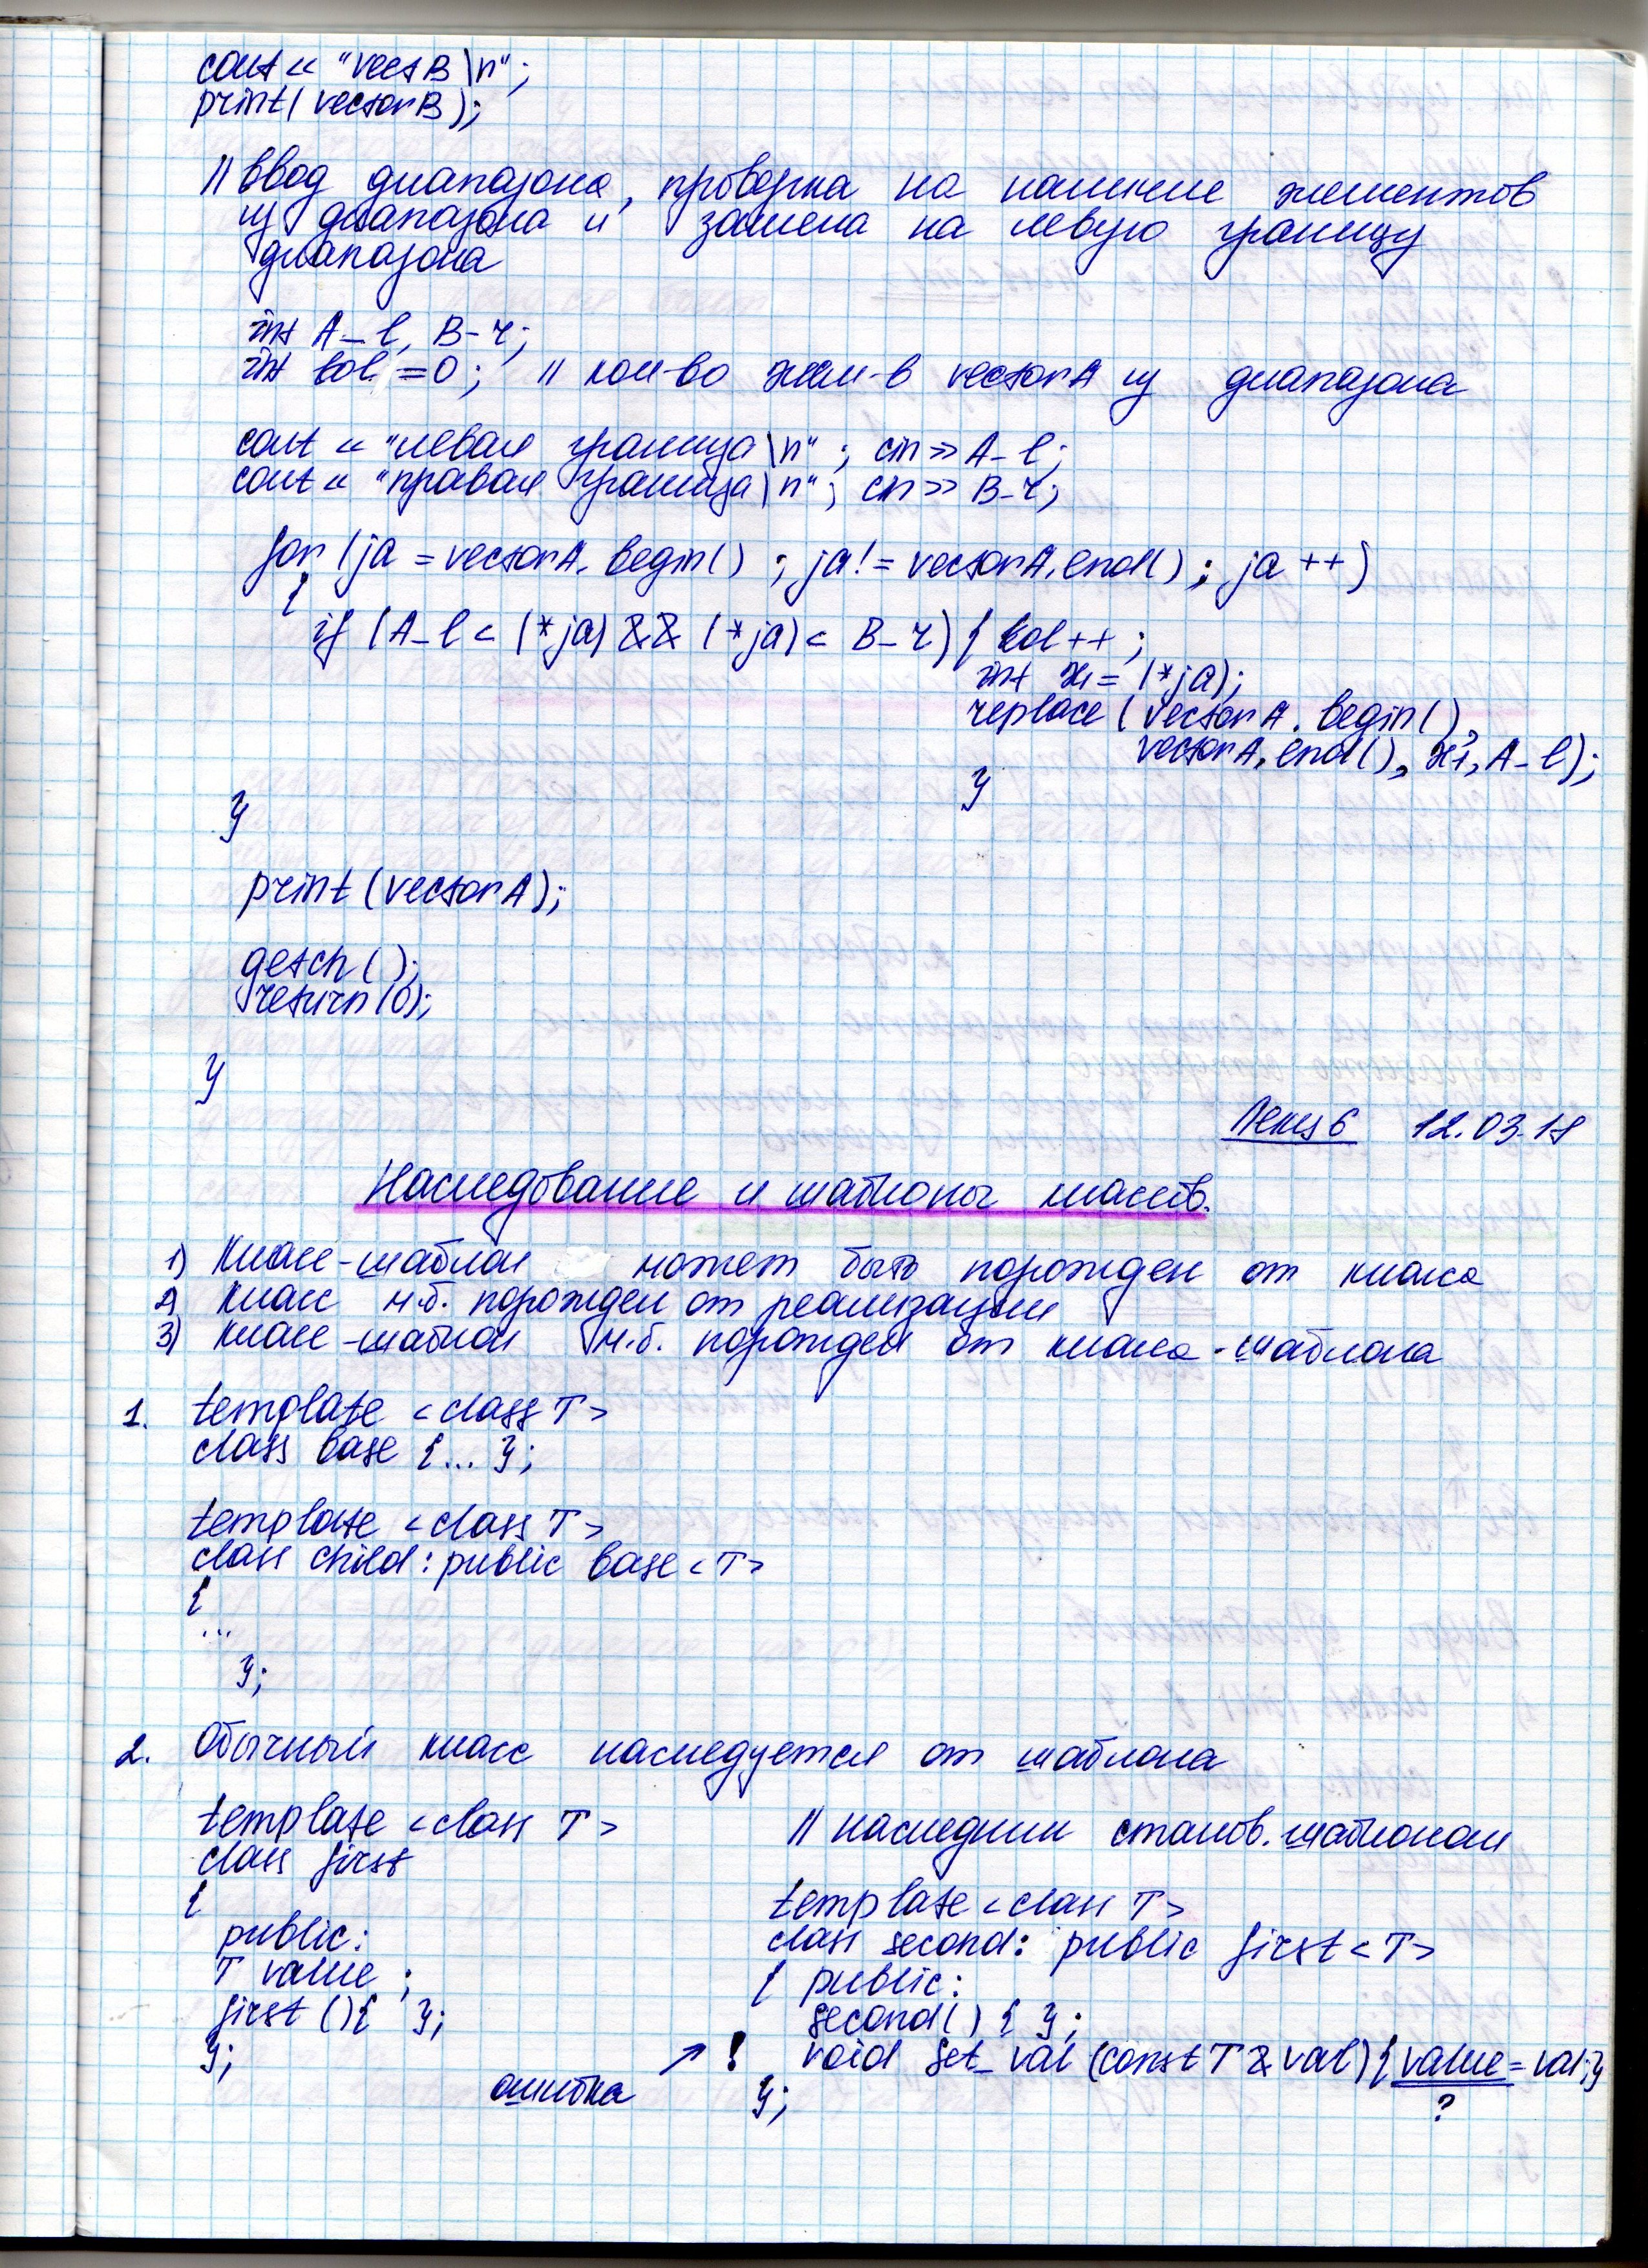 cout << "vectB\n";
print(vectorB);
// ввод диапазона, проверка на наличие элементов
из диапазона и замена на левую границу
диапазона
int A_l, B_r;
int kol = 0; // кол-во элем-в vectorA из диапазона
cout << "левая граница\n"; cin >> A_l;
cout << "правая граница\n"; cin >> B_r;
for (ja = vectorA.begin(); ja != vectorA.end(); ja++)
{
if (A_l < (*ja) && (*ja) < B_r) { kol++;
int x1 = (*ja);
replace(vectorA.begin(),
vectorA.end(), x1, A_l);
}
}
print(vectorA);
getch();
return(0);
}
Лекц 6 12.03.18
Наследование и шаблоны классов.
1) Класс-шаблон может быть порожден от класса
2) Класс м.б. порожден от реализации
3) Класс-шаблон м.б. порожден от класса-шаблона
1. template <class T>
class base {... };
template <class T>
class child: public base<T>
{
...
};
2. Обычный класс наследуется от шаблона
template <class T>
class first
{
public:
T value;
first(){ };
};
// наследник станов. шаблоном
template <class T>
class second: public first<T>
{ public:
second() { };
ошибка ↗ ! void set_val (const T & val) { value = val;}
?
};